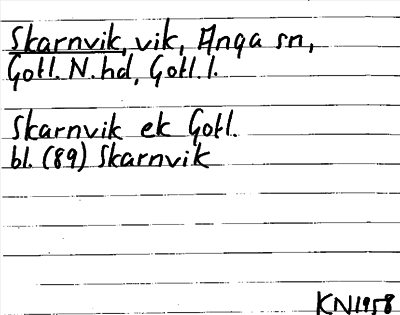 Skarnvik, vik, Anga sn,
Gotl. N. hd, Gotl. l.
Skarnvik ek Gotl.
bl. (89) Skarnvik
KN1958